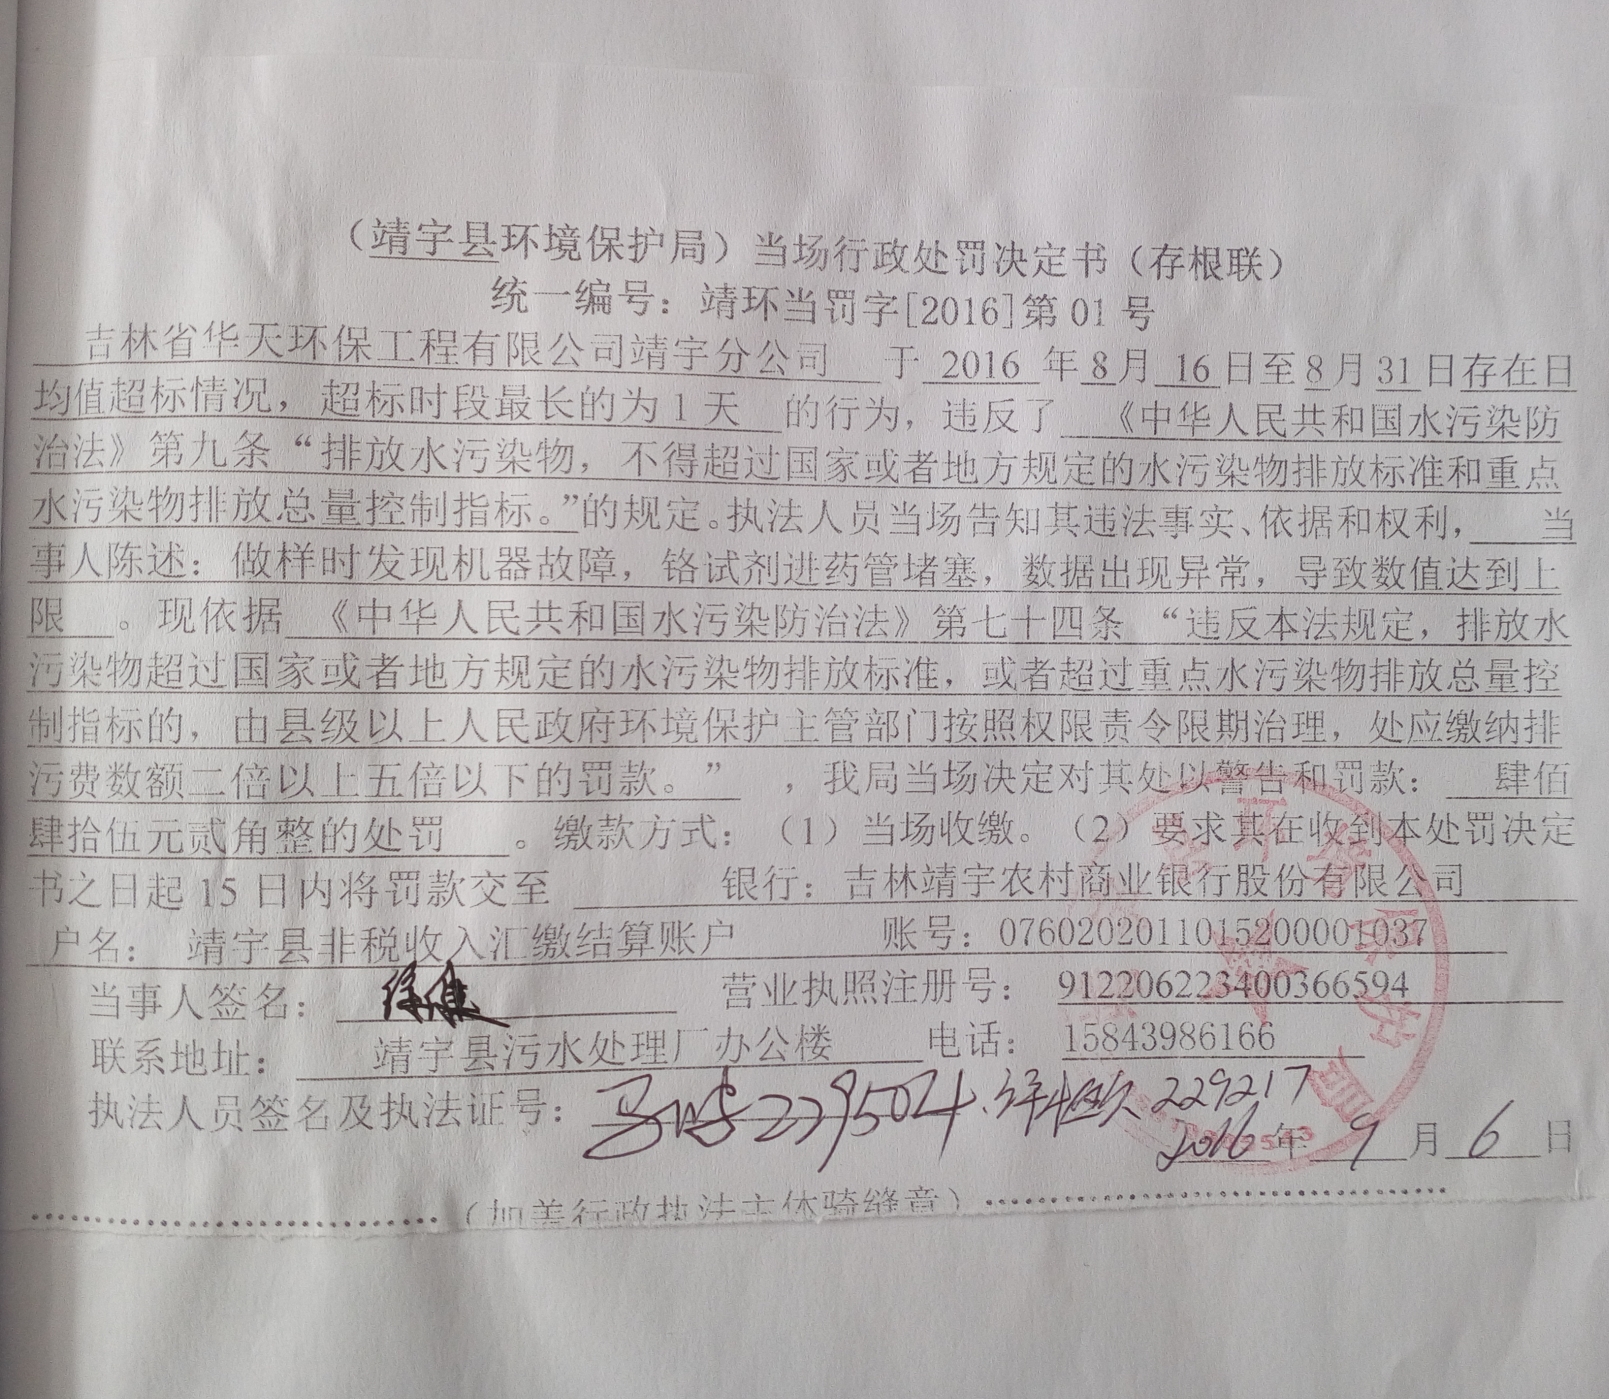 （靖宇县环境保护局）当场行政处罚决定书（存根联）
统一编号：靖环当罚字[2016]第 01 号
吉林省华天环保工程有限公司靖宇分公司 于 2016 年 8 月 16 日至 8 月 31 日存在日
均值超标情况，超标时段最长的为 1 天 的行为，违反了 《中华人民共和国水污染防
治法》第九条“排放水污染物，不得超过国家或者地方规定的水污染物排放标准和重点
水污染物排放总量控制指标。”的规定。执法人员当场告知其违法事实、依据和权利， 当
事人陈述：做样时发现机器故障，铬试剂进药管堵塞，数据出现异常，导致数值达到上
限 。现依据 《中华人民共和国水污染防治法》第七十四条 “违反本法规定，排放水
污染物超过国家或者地方规定的水污染物排放标准，或者超过重点水污染物排放总量控
制指标的，由县级以上人民政府环境保护主管部门按照权限责令限期治理，处应缴纳排
污费数额二倍以上五倍以下的罚款。” ，我局当场决定对其处以警告和罚款： 肆佰
肆拾伍元贰角整的处罚 。缴款方式：（1）当场收缴。（2）要求其在收到本处罚决定
书之日起 15 日内将罚款交至 银行：吉林靖宇农村商业银行股份有限公司
户名： 靖宇县非税收入汇缴结算账户 账号：0760202011015200001037
当事人签名： 营业执照注册号： 912206223400366594
联系地址： 靖宇县污水处理厂办公楼 电话： 15843986166
执法人员签名及执法证号： 229504 229217
2016 年 9 月 6 日
（加盖行政执法主体骑缝章）